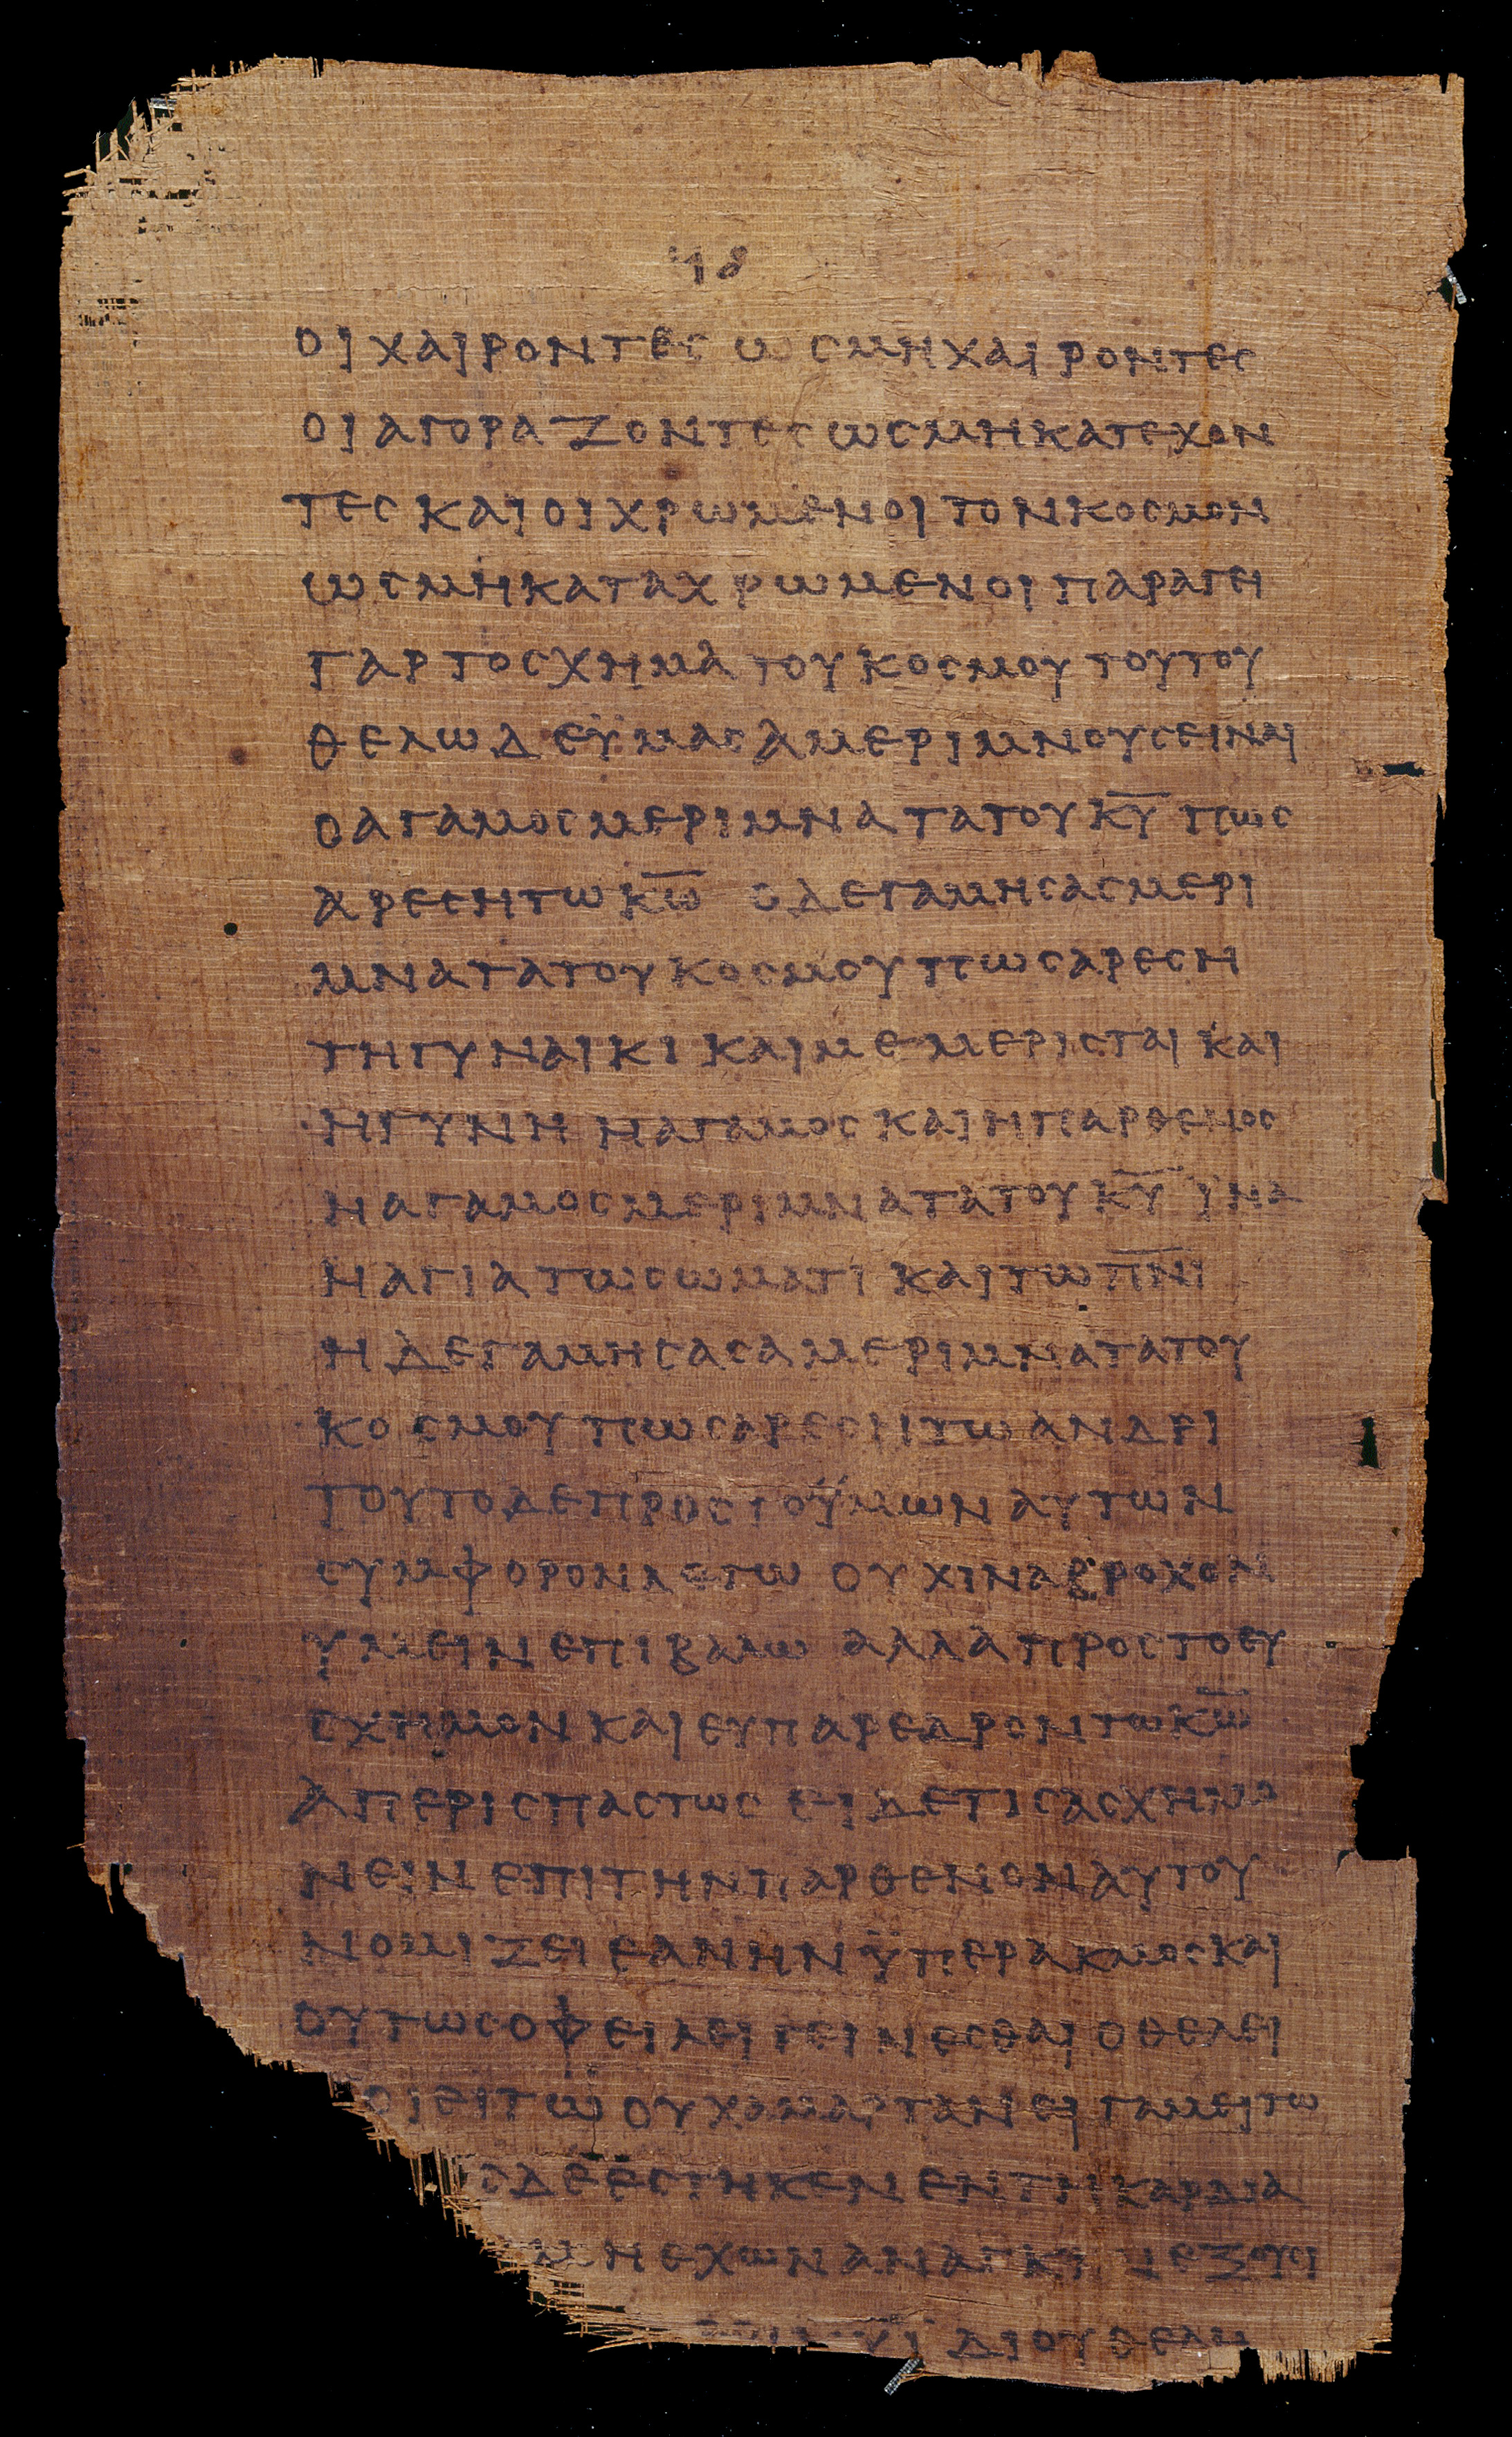 ϟδ
οιχαιροντεςωςμηχαιροντες
οιαγοραζοντεςωςμηκατεχον
τεςκαιοιχρωμενοιτονκοςμον
ωςμηκαταχρωμενοιπαραγει
γαρτοςχηματουκοςμουτουτου
θελωδεϋμαςαμεριμνουςειναι
οαγαμοςμεριμνατατουκ̅υ̅πως
αρεςητωκ̅ω̅ οδεγαμηςαςμερι
μνατατουκοςμουπωςαρεςη
τηγυναικικαιμεμερισταικαι
ηγυνηηαγαμοςκαιηπαρθενος
ηαγαμοςμεριμνατατουκ̅υ̅ϊνα
ηαγιατωςωματικαιτωπ̅ν̅ι̅
ηδεγαμηςαςαμεριμνατατου
κοςμουπωςαρεςητωανδρι
τουτοδεπροςτοϋμωναυτων
ςυμφορονλεγω ουχιναβροχον
υμεινεπιβαλω αλλαπροςτοευ
ςχημονκαιευπαρεδροντωκ̅ω̅
απεριςπαςτως ειδετιςαςχημο
νεινεπιτηνπαρθενοναυτου
νομιζειεανηνϋπερακμοςκαι
ουτωςοφειλειγεινεςθαιοθελει
οιειτωουχαμαρτανειγαμειτω
οδεεςτηκενεντηκαρδια
μηεχωναναγκη εξουσι
διουθελη